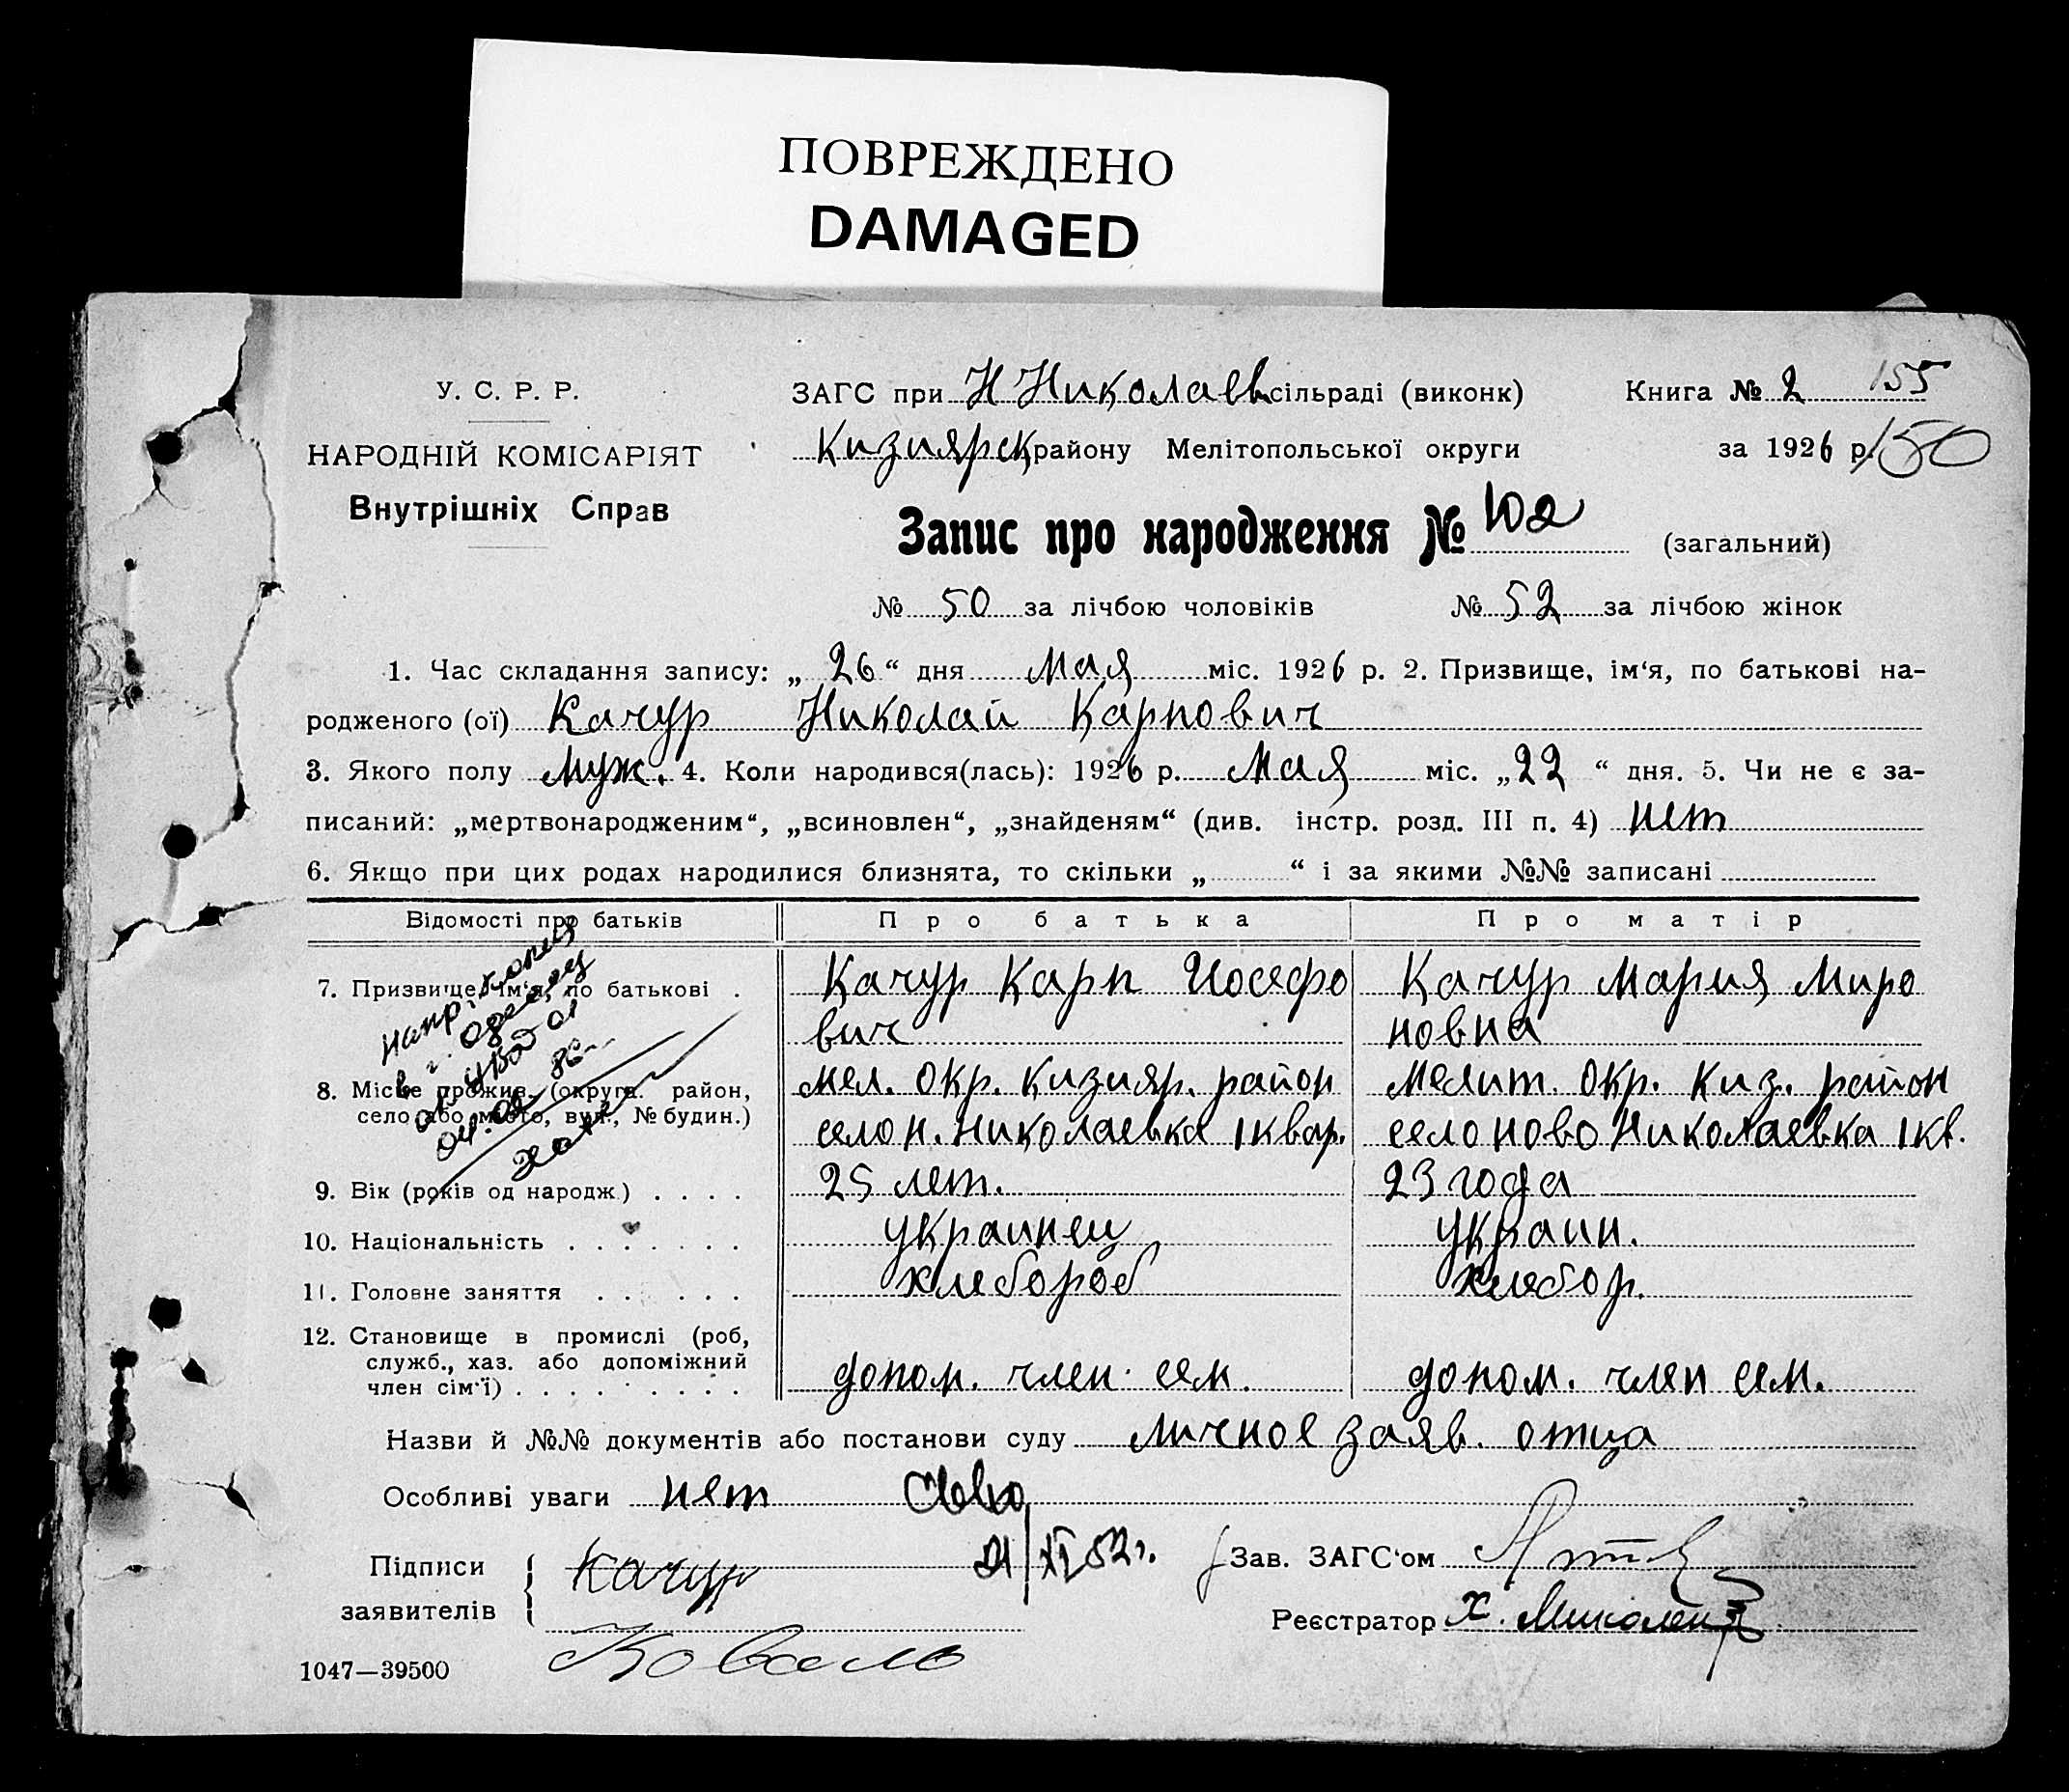 ПОВРЕЖДЕНО
DAMAGED
У. С. Р. Р.
НАРОДНІЙ КОМІСАРІЯТ
Внутрішніх Справ
ЗАГС при Н Николаевс сільраді (виконк)
Кизиярск району Мелітопольської округи
Книга № 2 155
за 1926 р. 150
Запис про народження № 102 (загальний)
№ 50 за лічбою чоловіків № 52 за лічбою жінок
1. Час складання запису: „ 26 “ дня мая міс. 1926 р. 2. Призвище, ім‘я, по батькові на-
родженого (ої) Качур Николай Карпович
3. Якого полу муж. 4. Коли народився(лась): 1926 р. мая міс. „22 “ дня. 5. Чи не є за-
писаний: „мертвонародженим“, „всиновлен“, „знайденям“ (див. інстр. розд. III п. 4) нет
6. Якщо при цих родах народилися близнята, то скільки „ “ і за якими №№ записані
Відомості про батьків Про батька Про матір
7. Призвище, ім‘я, по батькові . Качур Карп Иосефо Качур Мария Миро
вич новна
8. Місце прожив. (округа. район, мел. окр. Кизияр. район Мелит. окр. Киз. район
село або місто, вул., № будин.) село Н. Николаевка 1 квар. село Ново Николаевка 1 кв.
9. Вік (років од народж.) . . . . 25 лет. 23 года
10. Національність . . . . . . . украинец украин.
11. Головне заняття . . . . . . хлебороб хлебор.
12. Становище в промислі (роб,
служб., хаз. або допоміжний
член сім‘ї) . . . . . . . . . допом. член сем. допом. член сем.
Назви й №№ документів або постанови суду личное заяв. отца
Особливі уваги нет
21/XI 52 г.
Підписи
заявителів
Качур
Коваль
Зав. ЗАГС‘ом
Реєстратор Х.
1047—39500